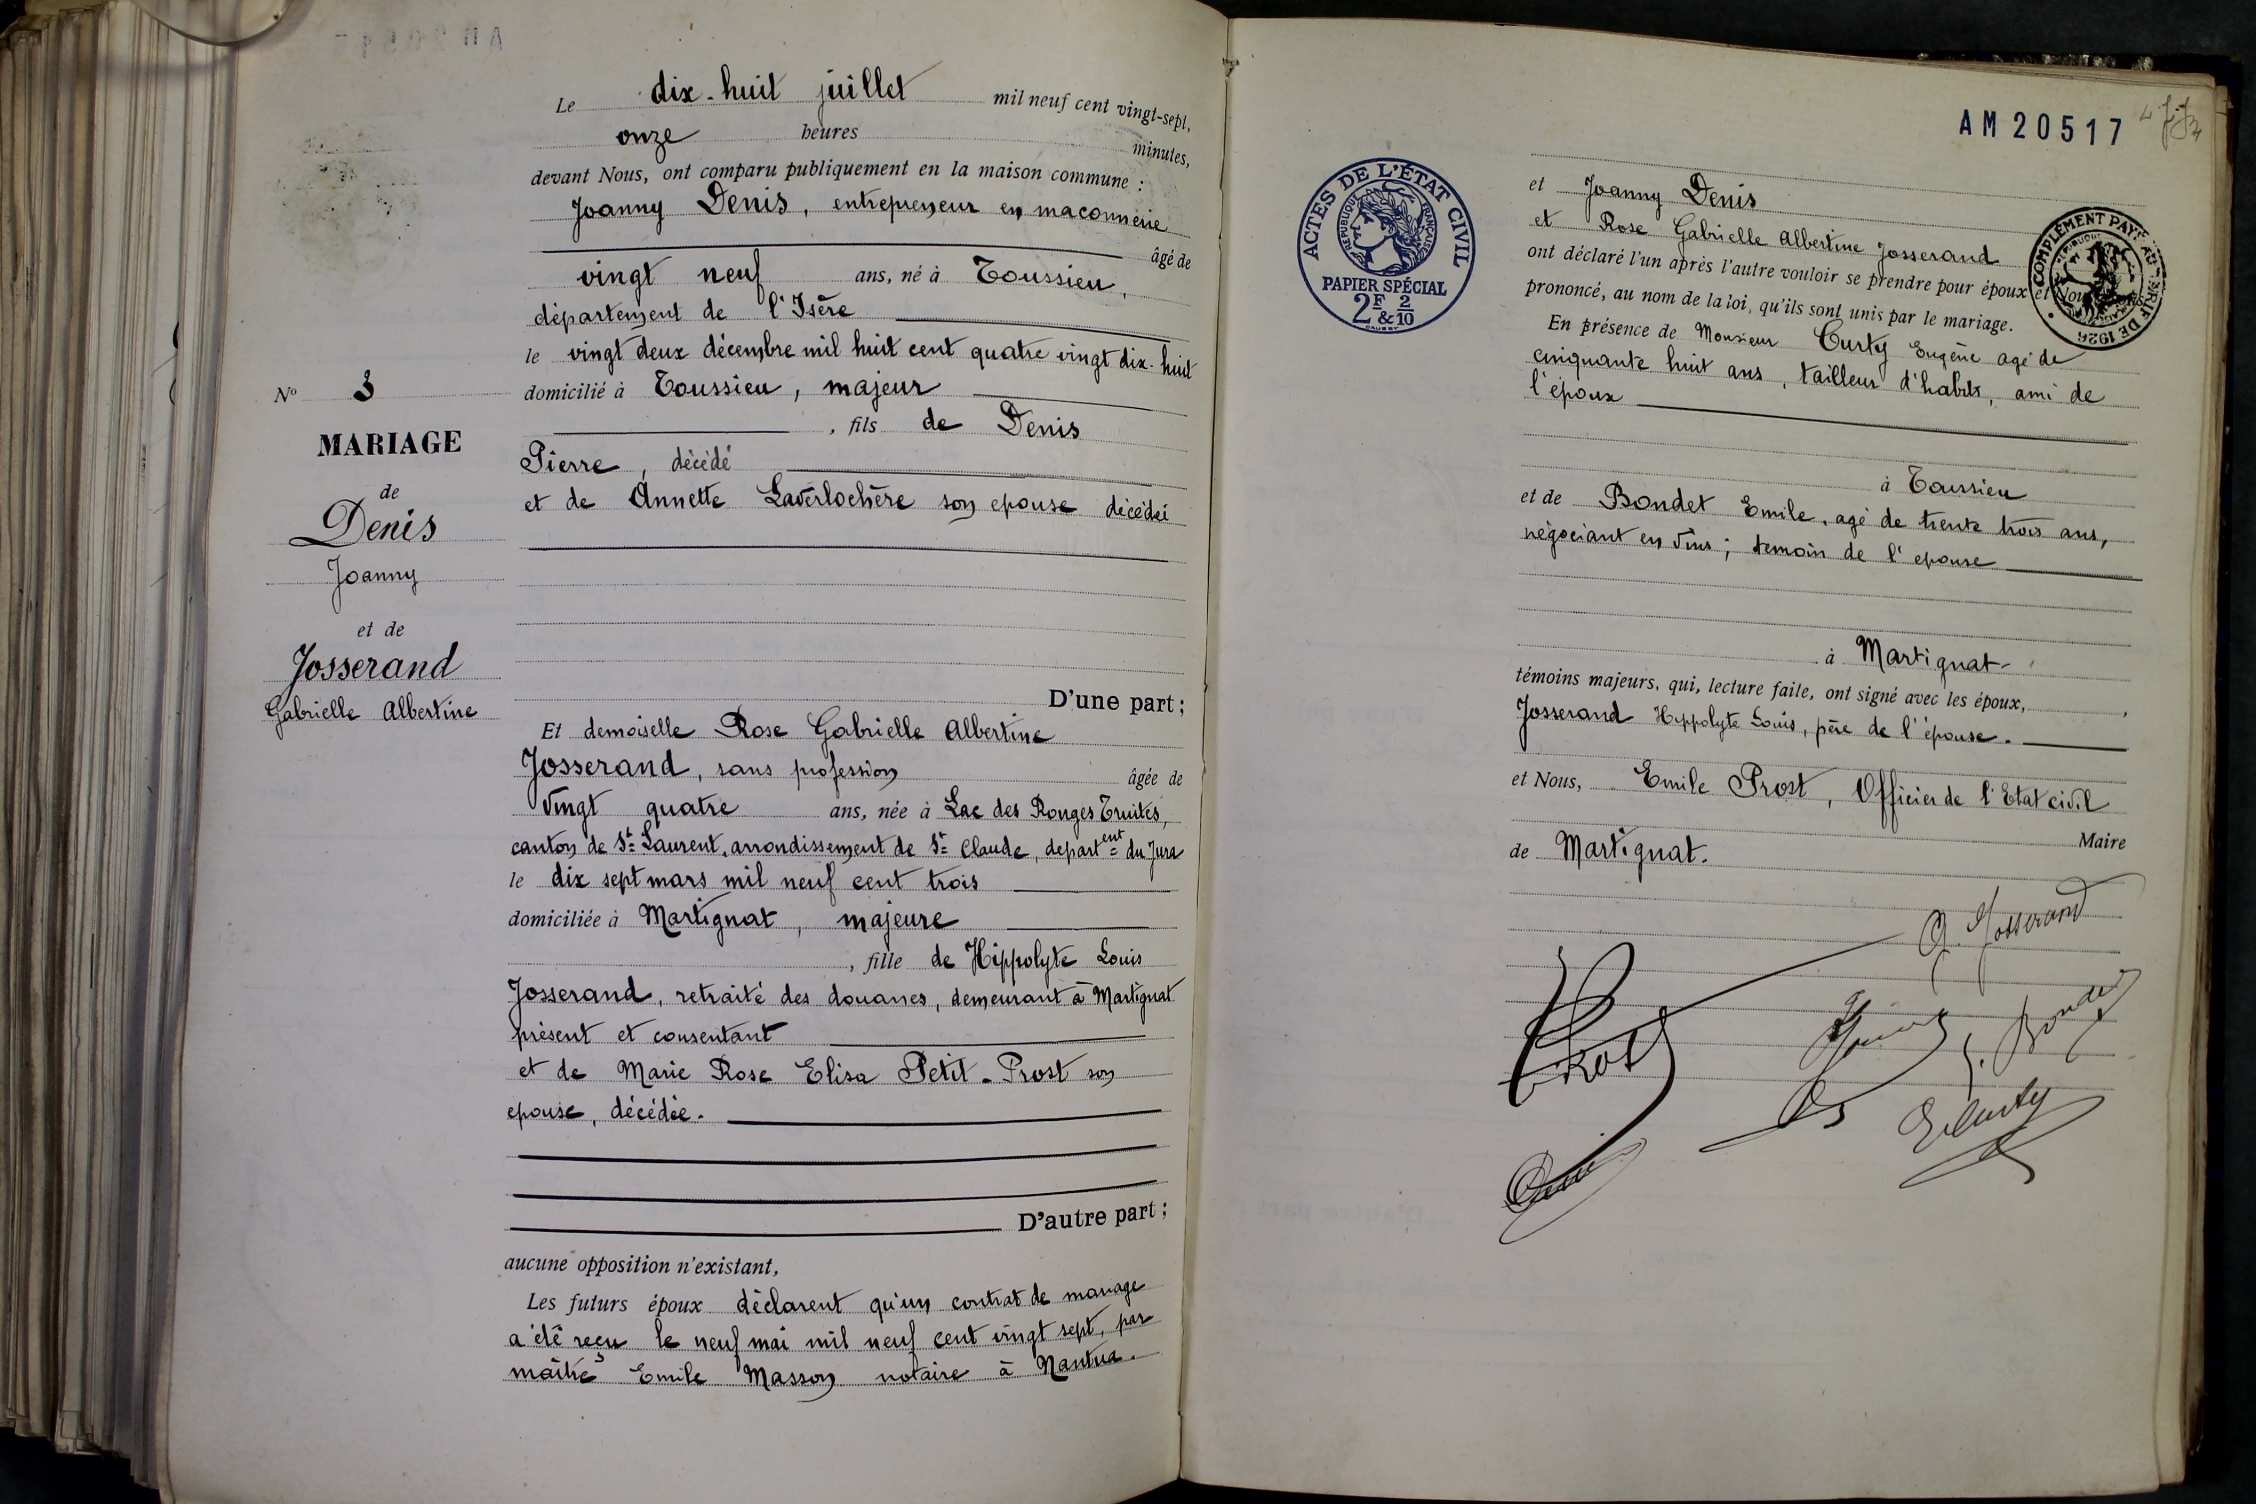 N° 3
MARIAGE
de
Denis
Joanny
et de
Josserand
Gabrielle Albertine
Le dix-huit juillet mil neuf cent vingt-sept,
onze heures minutes,
devant Nous, ont comparu publiquement en la maison commune :
Joanny Denis, entrepreneur en maconnerie
âgé de
vingt neuf ans, né à Toussieu,
département de l'Isère
le vingt deux décembre mil huit cent quatre vingt dix-huit
domicilié à Toussieu, majeur
, fils de Denis
Pierre, décédé
et de Annette Laverlochère son epouse décédéé
D'une part ;
Et demoiselle Rose Gabrielle Albertine
Josserand, sans profession âgée de
vingt quatre ans, née à Lac des Rouges Truites,
canton de St Laurent, arrondissement de St Claude, departent du Jura
le dix sept mars mil neuf cent trois
domiciliée à Martignat, majeure
, fille de Hippolyte Louis
Josserand, retraité des douanes, demeurant à Martignat
présent et consentant
et de Marie Rose Elisa Petit-Prost son
epouse, décédée.
D'autre part ;
aucune opposition n'existant,
Les futurs époux déclarent qu'un contrat de mariage
a été reçu le neuf mai mil neuf cent vingt sept, par
maître Emile Masson notaire à Nantua.
AM20517
ACTES DE L'ÉTAT CIVIL
RÉPUBLIQUE FRANÇAISE
PAPIER SPÉCIAL
2F & 2/10
COMPLÉMENT PAYÉ AU TARIF DE 1926
et Joanny Denis
et Rose Gabrielle Albertine Josserand
ont déclaré l'un après l'autre vouloir se prendre pour époux et Nous avons
prononcé, au nom de la loi, qu'ils sont unis par le mariage.
En présence de Monsieur Curty Eugène agé de
cinquante huit ans, tailleur d'habits, ami de
l'époux
à Toussieu
et de Bondet Emile, agé de trente trois ans,
négociant en vins ; temoin de l'epouse
à Martignat
témoins majeurs, qui, lecture faite, ont signé avec les époux,
Josserand Hippolyte Louis, père de l'épouse.
et Nous, Emile Prost, Officier de l'Etat civil
Maire
de Martignat.
G. Josserand
Prost
E. Bondet
E Curty
Denis